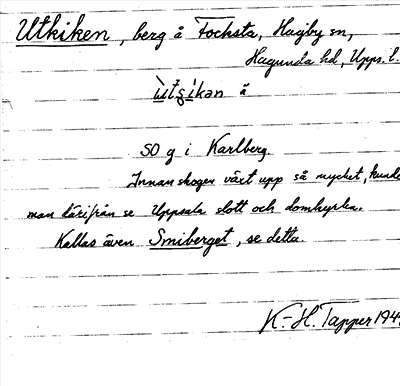 Utkiken, berg å Focksta, Hagby sn,
Hagunda hd, Upps. l.
ùtçìkan å
SO g i Karlberg.
Innan skogen växt upp så mycket, kunde
man därifrån se Uppsala slott och domkyrka.
Kallas även Smiberget, se detta.
K.-H. Tapper 194